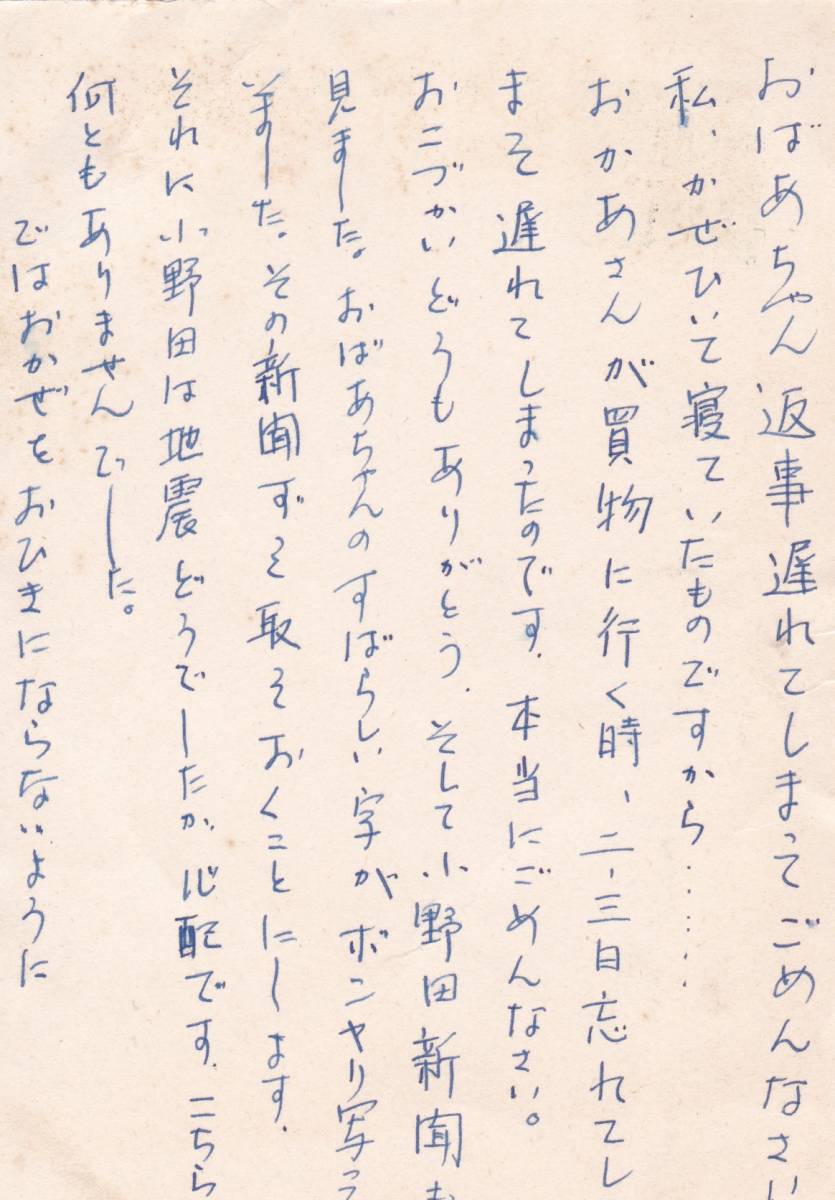 おばあちゃん返事遅れてしまってごめんなさい
私、かぜひいて寝ていたものですから……
おかあさんが買物に行く時、二、三日忘れてし
まそ遅れてしまったのです。本当にごめんなさい。
おこづかいどうもありがとう。そして小野田新聞も
見ました。おばあちゃんのすばらしい字がボンヤリ写っ
いました。その新聞ずっと取そおくことにします。
それに小野田は地震どうでしたか、心配です。こちら
何ともありませんでした。
ではおかぜをおひきにならないように